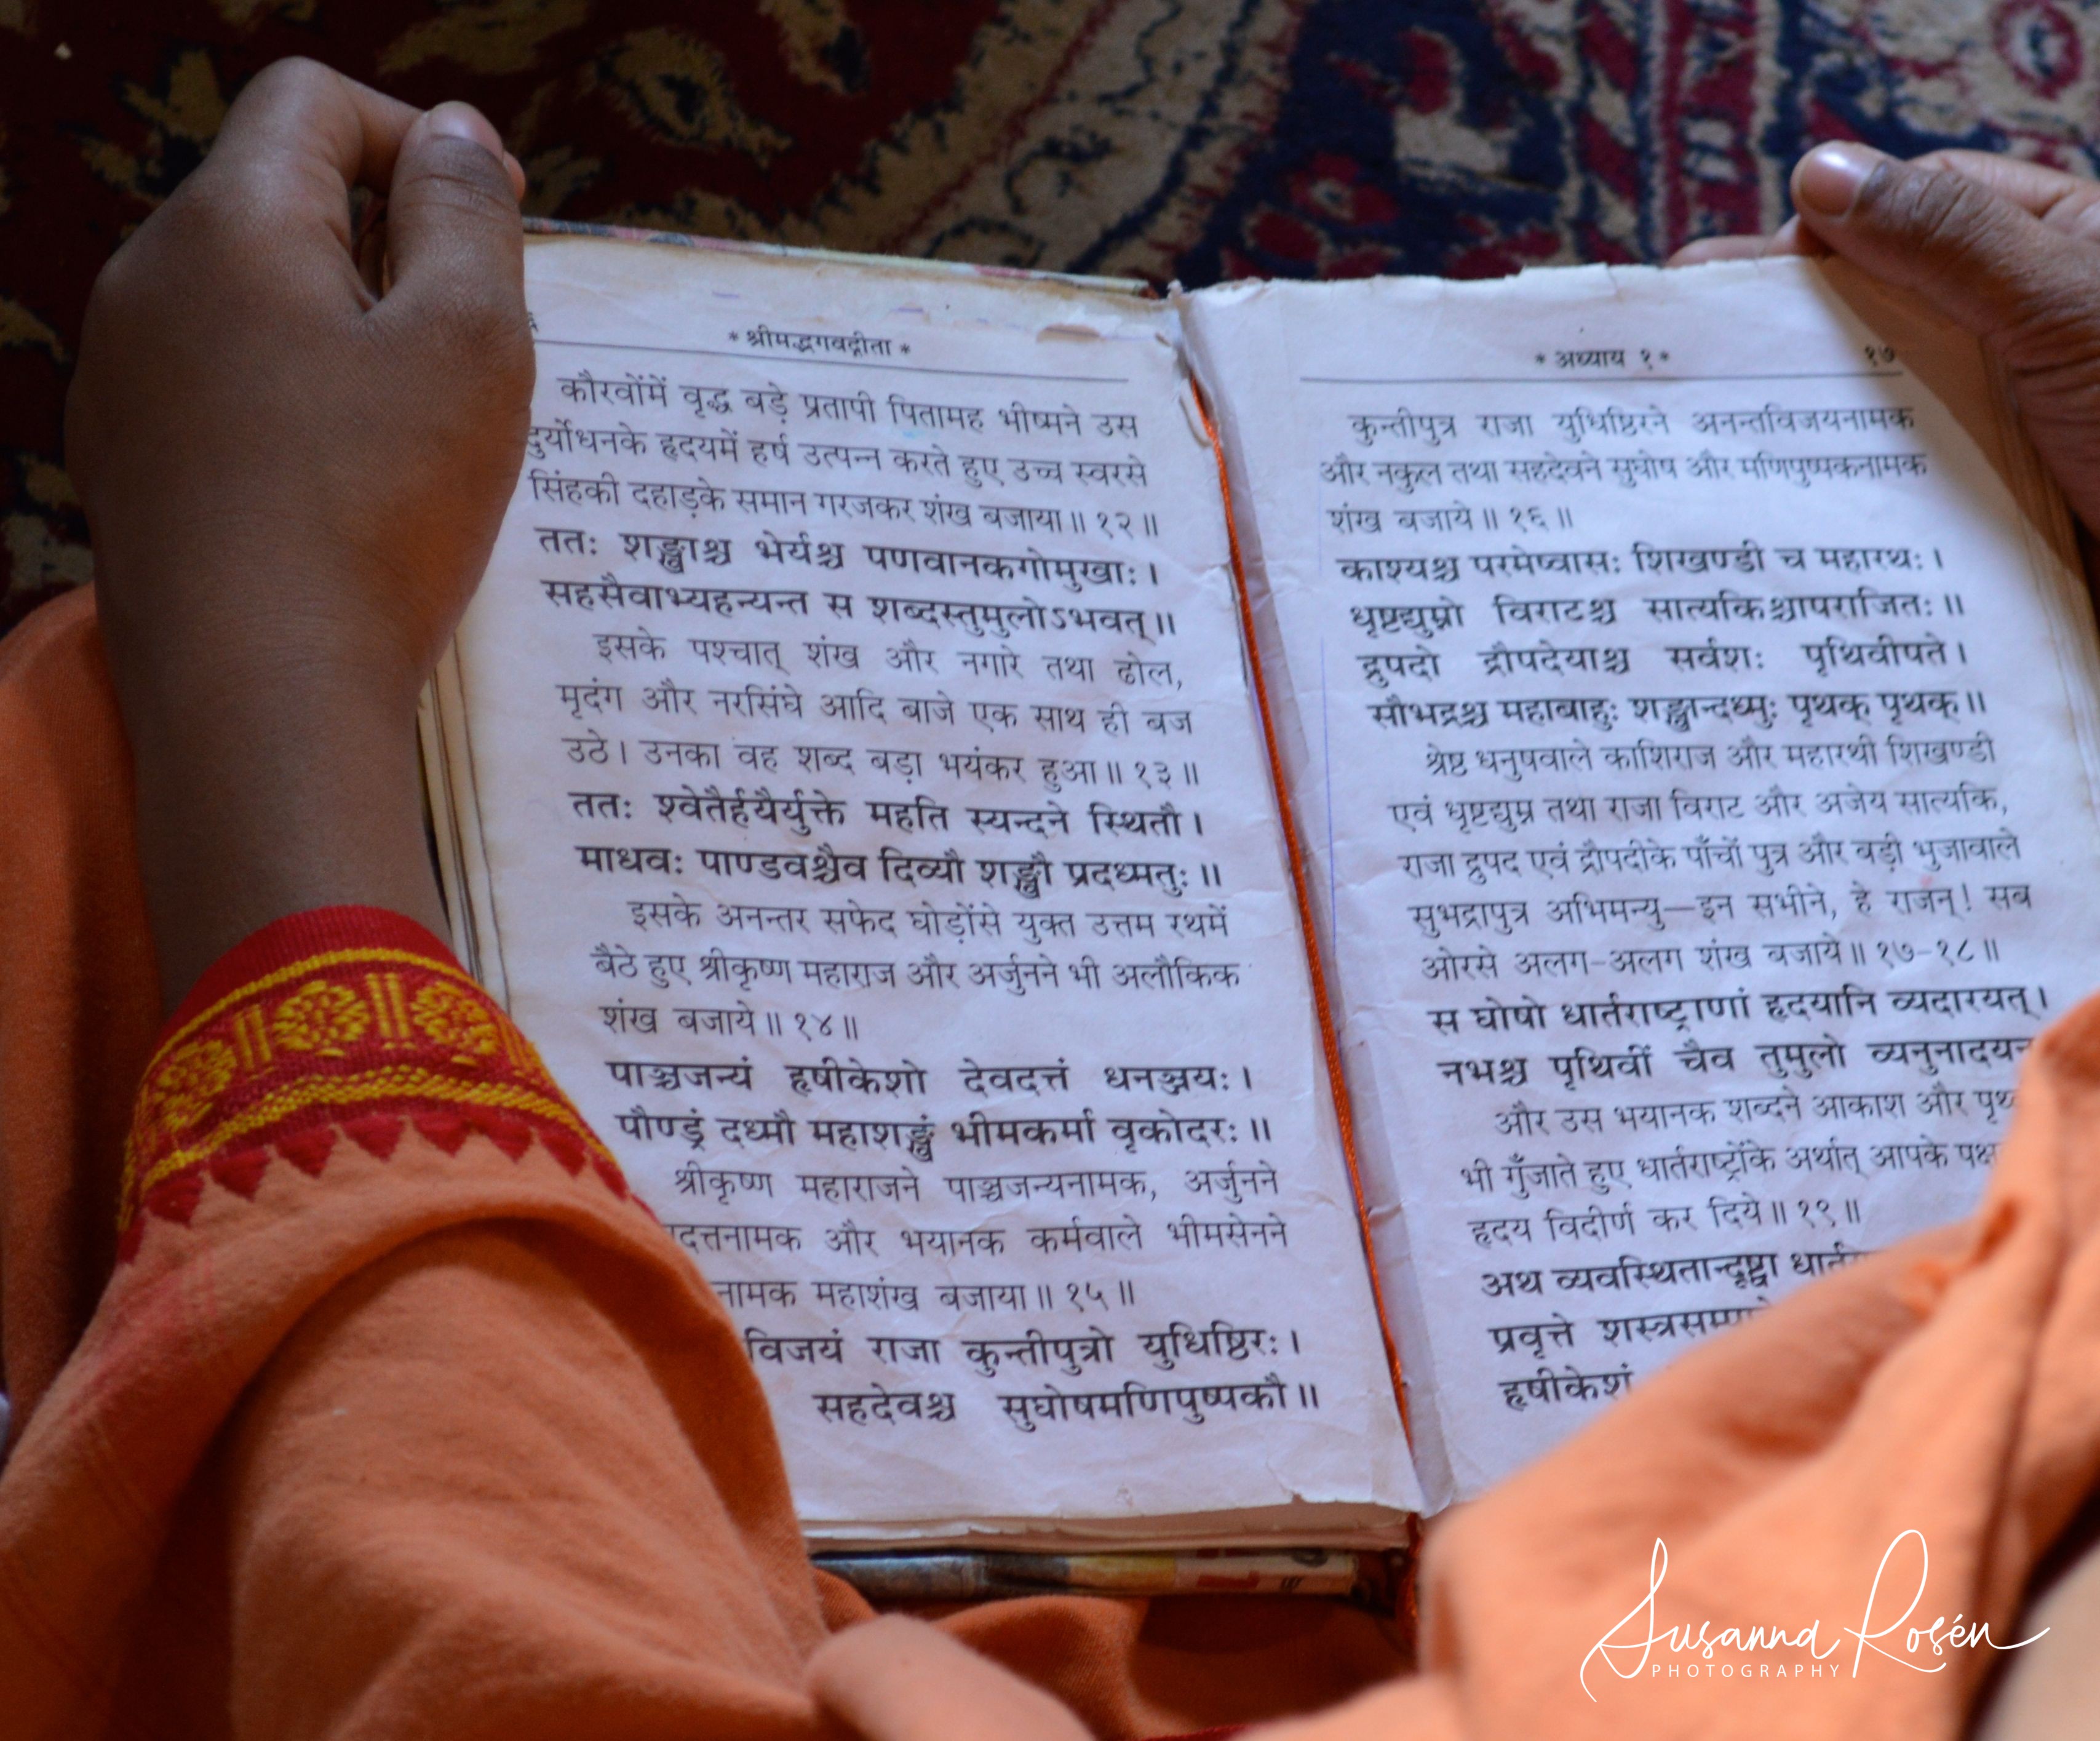 * श्रीमद्भगवद्गीता *
कौरवोंमें वृद्ध बड़े प्रतापी पितामह भीष्मने उस
दुर्योधनके हृदयमें हर्ष उत्पन्न करते हुए उच्च स्वरसे
सिंहकी दहाड़के समान गरजकर शंख बजाया॥ १२॥
ततः शङ्खाश्च भेर्यश्च पणवानकगोमुखाः।
सहसैवाभ्यहन्यन्त स शब्दस्तुमुलोऽभवत्॥
इसके पश्चात् शंख और नगारे तथा ढोल,
मृदंग और नरसिंघे आदि बाजे एक साथ ही बज
उठे। उनका वह शब्द बड़ा भयंकर हुआ॥ १३॥
ततः श्वेतैर्हयैर्युक्ते महति स्यन्दने स्थितौ।
माधवः पाण्डवश्चैव दिव्यौ शङ्खौ प्रदध्मतुः॥
इसके अनन्तर सफेद घोड़ोंसे युक्त उत्तम रथमें
बैठे हुए श्रीकृष्ण महाराज और अर्जुनने भी अलौकिक
शंख बजाये॥ १४॥
पाञ्चजन्यं हृषीकेशो देवदत्तं धनञ्जयः।
पौण्ड्रं दध्मौ महाशङ्खं भीमकर्मा वृकोदरः॥
श्रीकृष्ण महाराजने पाञ्चजन्यनामक, अर्जुनने
दत्तनामक और भयानक कर्मवाले भीमसेनने
नामक महाशंख बजाया॥ १५॥
विजयं राजा कुन्तीपुत्रो युधिष्ठिरः।
सहदेवश्च सुघोषमणिपुष्पकौ॥
* अध्याय १ * १७
कुन्तीपुत्र राजा युधिष्ठिरने अनन्तविजयनामक
और नकुल तथा सहदेवने सुघोष और मणिपुष्पकनामक
शंख बजाये॥ १६॥
काश्यश्च परमेष्वासः शिखण्डी च महारथः।
धृष्टद्युम्नो विराटश्च सात्यकिश्चापराजितः॥
द्रुपदो द्रौपदेयाश्च सर्वशः पृथिवीपते।
सौभद्रश्च महाबाहुः शङ्खान्दध्मुः पृथक् पृथक्॥
श्रेष्ठ धनुषवाले काशिराज और महारथी शिखण्डी
एवं धृष्टद्युम्न तथा राजा विराट और अजेय सात्यकि,
राजा द्रुपद एवं द्रौपदीके पाँचों पुत्र और बड़ी भुजावाले
सुभद्रापुत्र अभिमन्यु—इन सभीने, हे राजन्! सब
ओरसे अलग-अलग शंख बजाये॥ १७-१८॥
स घोषो धार्तराष्ट्राणां हृदयानि व्यदारयत्।
नभश्च पृथिवीं चैव तुमुलो व्यनुनादयन
और उस भयानक शब्दने आकाश और पृथ
भी गुँजाते हुए धार्तराष्ट्रोंके अर्थात् आपके पक्ष
हृदय विदीर्ण कर दिये॥ १९॥
अथ व्यवस्थितान्दृष्ट्वा धार्त
प्रवृत्ते शस्त्रसम्पा
हृषीकेशं
Susanna Rosén
PHOTOGRAPHY